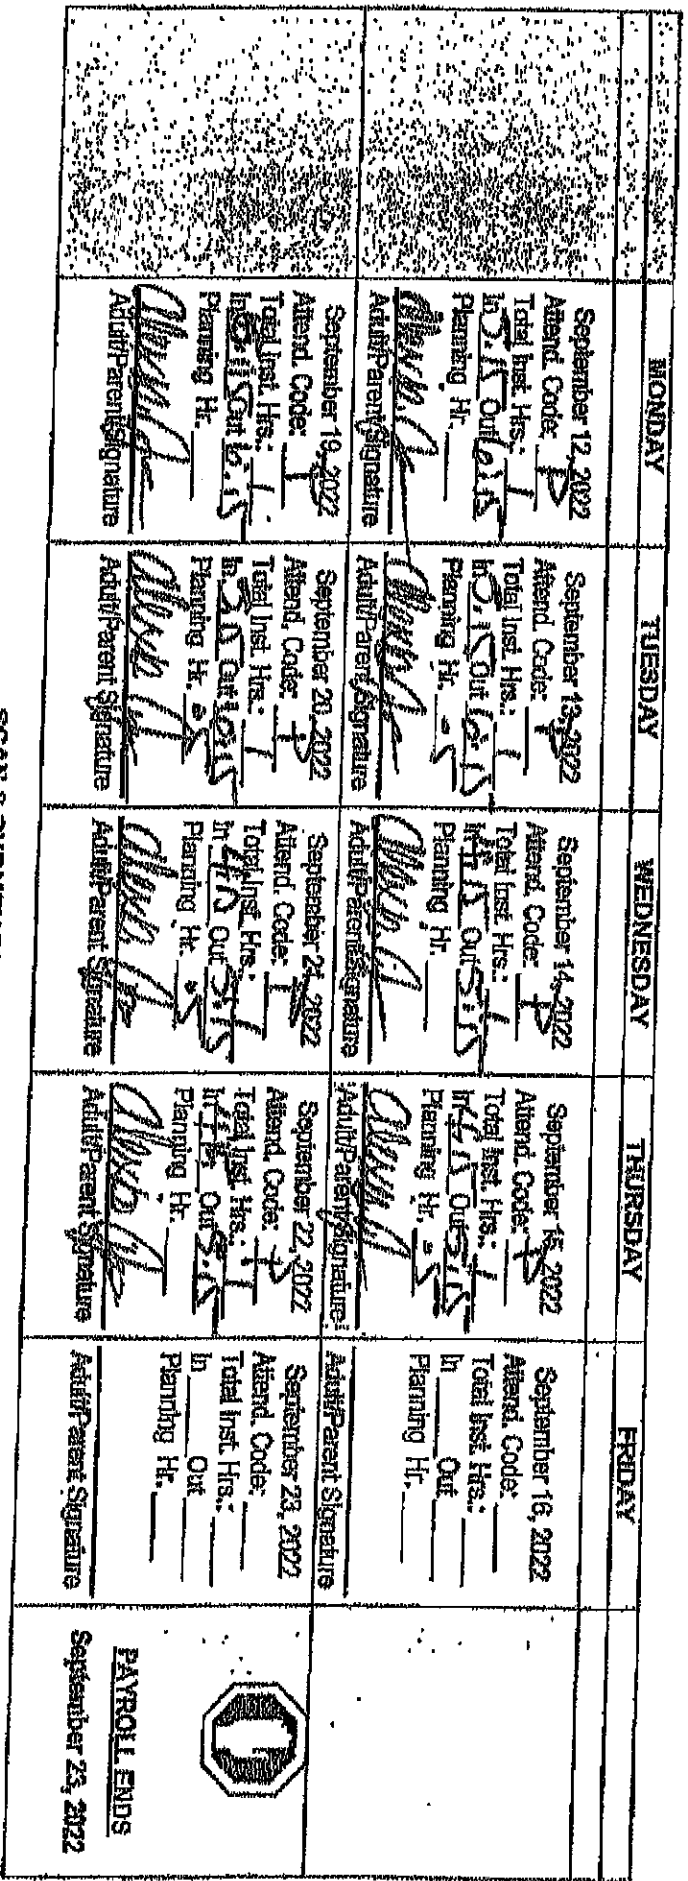 MONDAY
TUESDAY
WEDNESDAY
THURSDAY
FRIDAY
September 12, 2022
Attend. Code: P
Total Inst. Hrs.: 1
In 5:15 Out 6:15
Planning Hr.
Adult/Parent Signature
September 13, 2022
Attend. Code: P
Total Inst. Hrs.: 1
In 5:15 Out 6:15
Planning Hr. .5
Adult/Parent Signature
September 14, 2022
Attend. Code: P
Total Inst. Hrs.: 1
In 4:15 Out 5:15
Planning Hr.
Adult/Parent Signature
September 15, 2022
Attend. Code: P
Total Inst. Hrs.: 1
In 4:15 Out 5:15
Planning Hr. .5
Adult/Parent Signature
September 16, 2022
Attend. Code:
Total Inst. Hrs.:
In Out
Planning Hr.
Adult/Parent Signature
September 19, 2022
Attend. Code: P
Total Inst. Hrs.: 1
In 5:15 Out 6:15
Planning Hr.
Adult/Parent Signature
September 20, 2022
Attend. Code: P
Total Inst. Hrs.: 1
In 5:15 Out 6:15
Planning Hr. .5
Adult/Parent Signature
September 21, 2022
Attend. Code: P
Total Inst. Hrs.: 1
In 4:15 Out 5:15
Planning Hr. .5
Adult/Parent Signature
September 22, 2022
Attend. Code: P
Total Inst. Hrs.: 1
In 4:15 Out 5:15
Planning Hr.
Adult/Parent Signature
September 23, 2022
Attend. Code:
Total Inst. Hrs.:
In Out
Planning Hr.
Adult/Parent Signature
PAYROLL ENDS
September 23, 2022